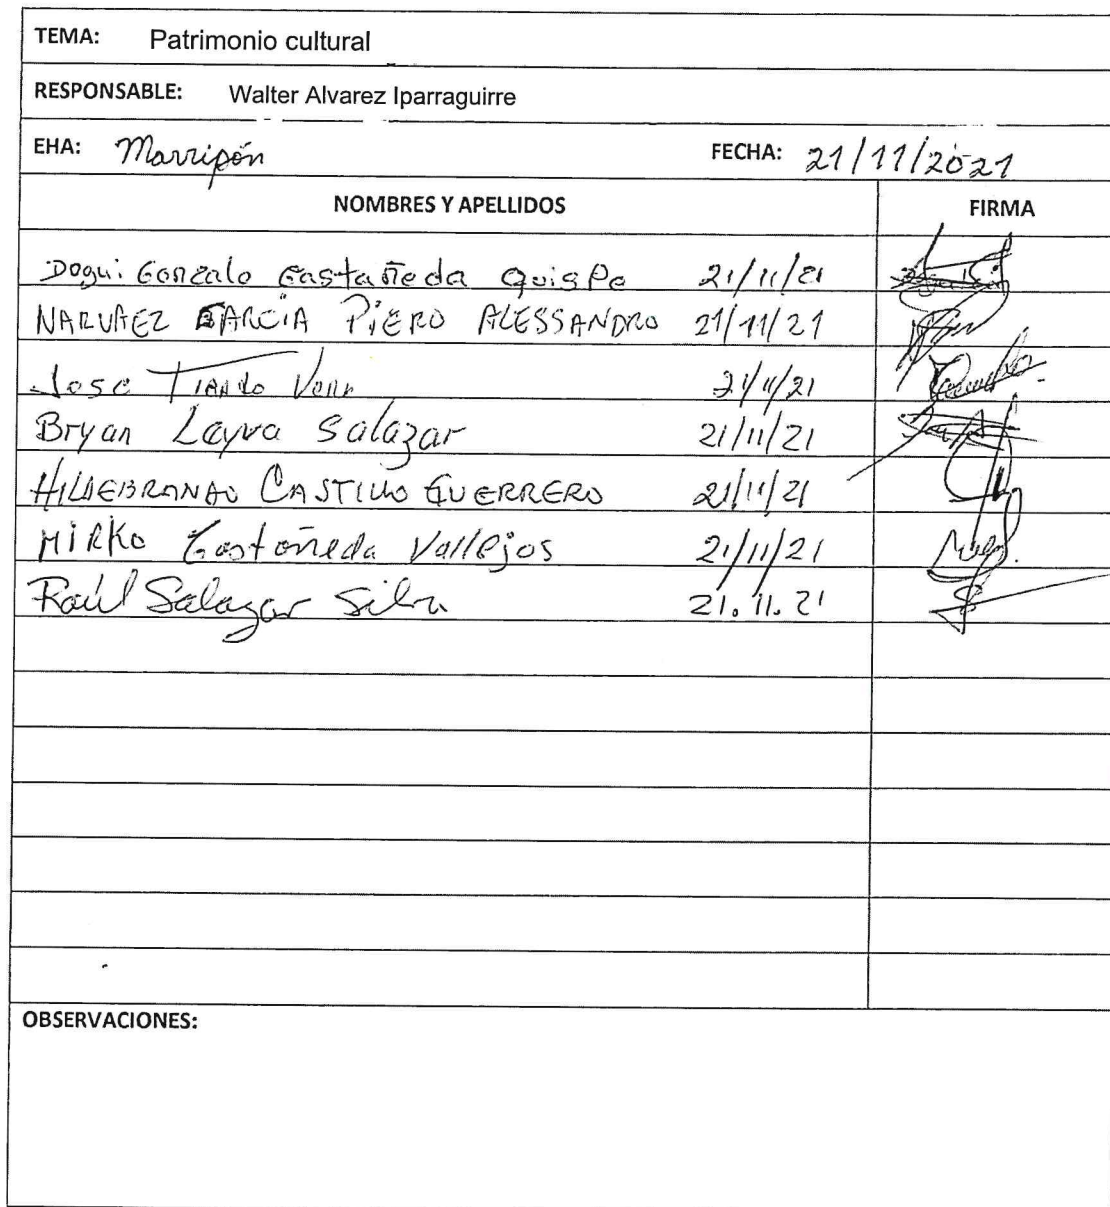 TEMA: Patrimonio cultural
RESPONSABLE: Walter Alvarez Iparraguirre
EHA: Marripón FECHA: 21/11/2021
NOMBRES Y APELLIDOS FIRMA
Gonzalo Castañeda Quispe 21/11/21
NARVAEZ GARCIA PiERO ALESSANDRO 21/11/21
Jose 21/11/21
Bryan Layva Salazar 21/11/21
HILDEBRANDO CASTILLO GUERRERO 21/11/21
MIRKO Castañeda Vallejos 21/11/21
Raúl Salazar Silva 21.11.21
OBSERVACIONES: